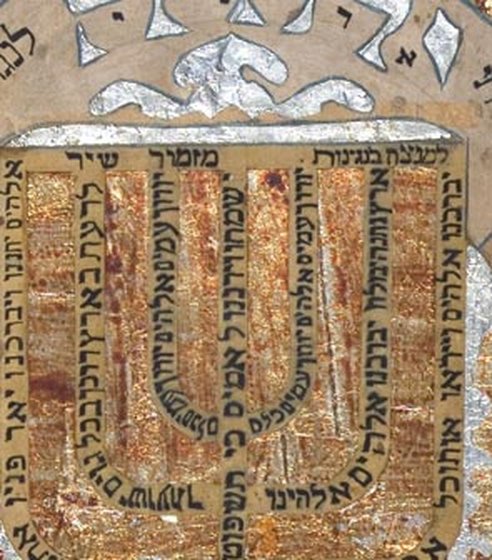 למנצח בנגינות מזמור שיר
אלהים יחננו ויברכנו יאר פניו
לדעת בארץ דרכך בכל גוים ישועתך
יודוך עמים אלהים יודוך עמים כלם
ישמחו וירננו לאמים כי תשפוט
יודוך עמים אלהים יודוך עמים כלם
ארץ נתנה יבולה יברכנו אלהים אלהינו
יברכנו אלהים וייראו אותו כל